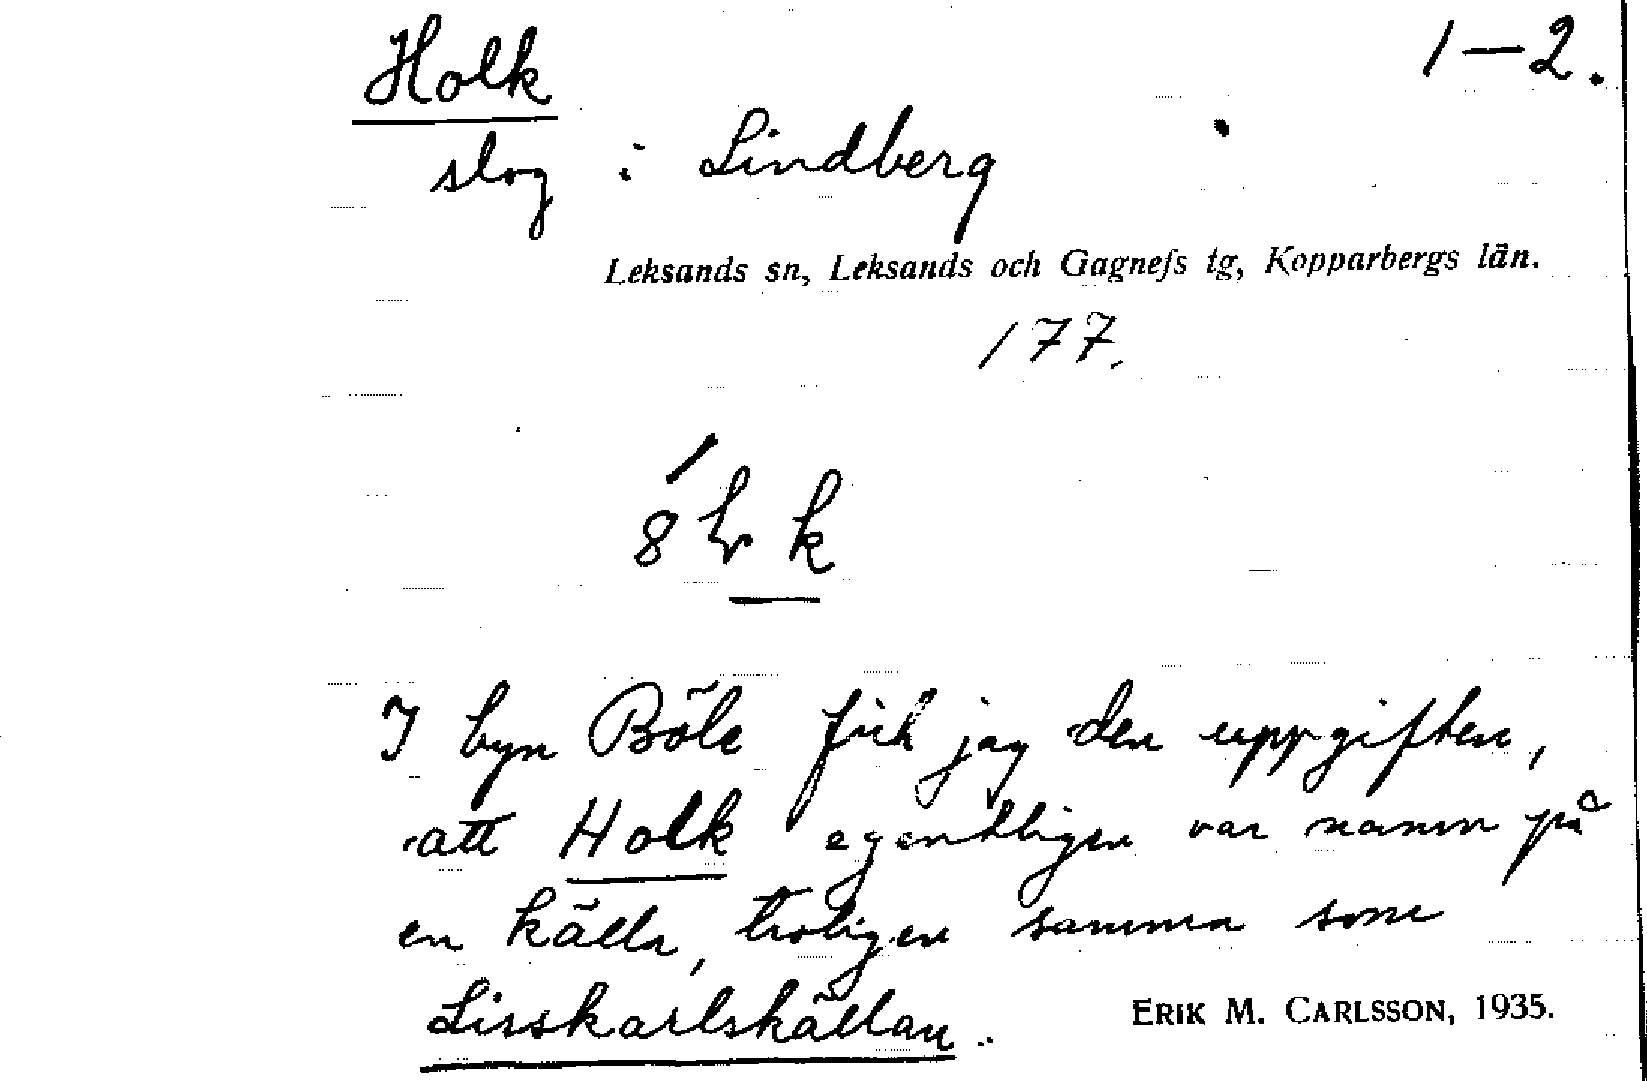 Holk 1–2.
slog i Lindberg
Leksands sn, Leksands och Gagnefs tg, Kopparbergs län.
177.
I byn Böle fick jag den uppgiften,
att Holk egentligen var namn på
en källa, troligen samma som
Lisskarlskällan.
ERIK M. CARLSSON, 1935.